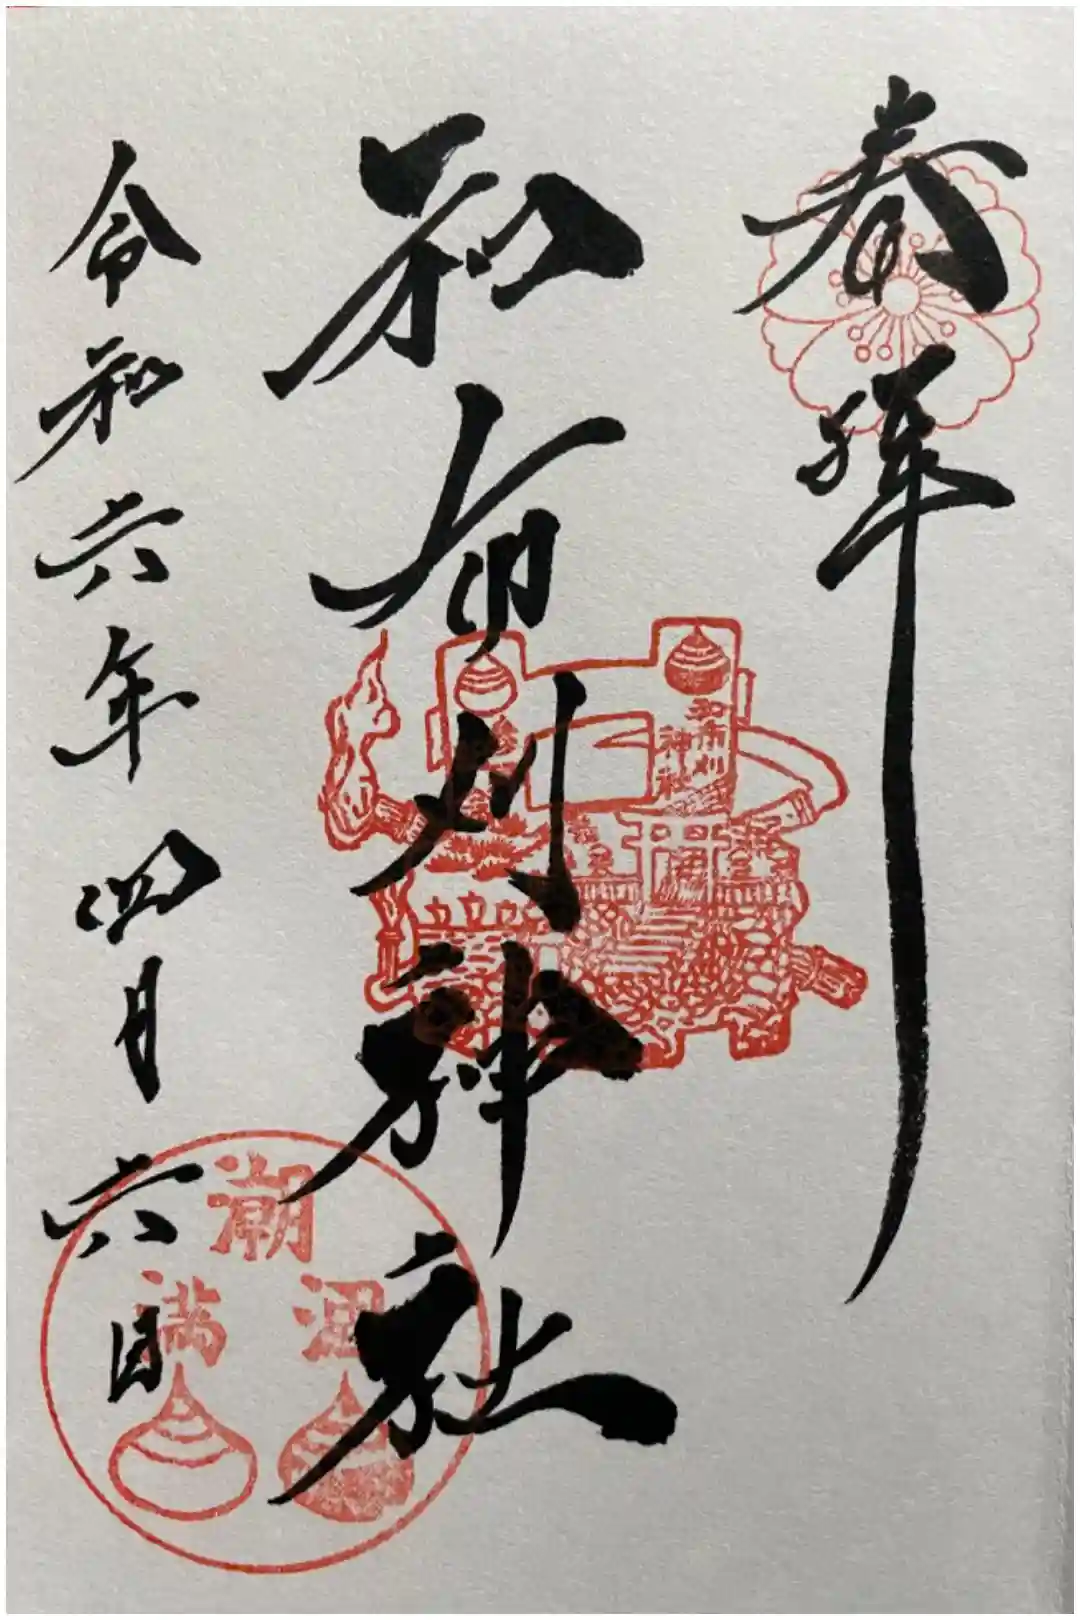 奉拝
和布刈神社
令和六年四月六日
和布刈
神社
潮
満
涸